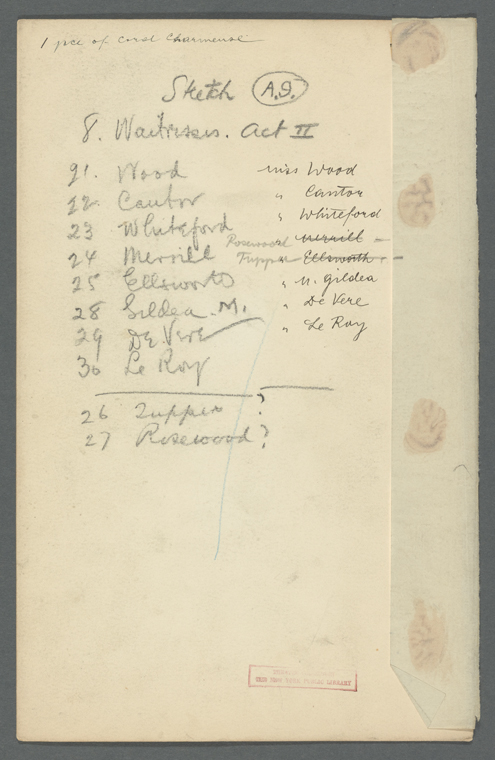 1 pce of coral Charmeuse
Sketch A.9.
8. Waitresses. Act II
21. Wood
22. Cantor
23 Whiteford
24 Merrill
25 Ellsworth
28 Gildea. M.
29 De Vere
30 Le Roy
26 Tupper ?
27 Rosewood ?
Miss Wood
" Cantor
" Whiteford
Rosewood Merrill –
Tupper Ellsworth –
" M. Gildea
" De Vere
" Le Roy
THE NEW YORK PUBLIC LIBRARY